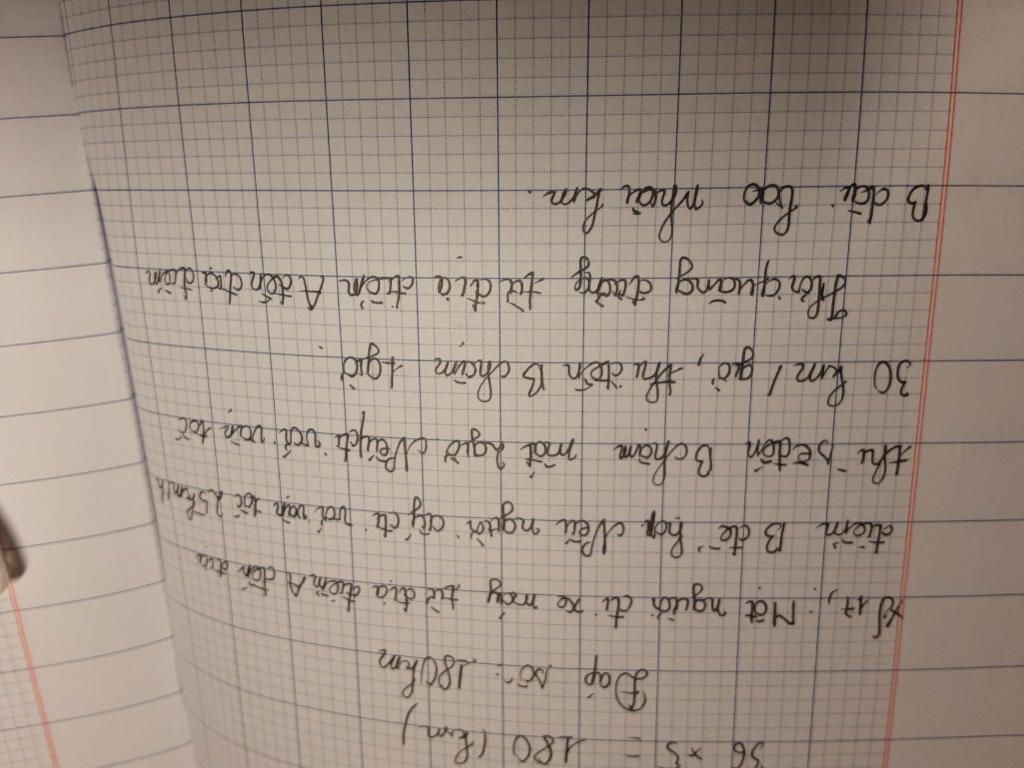 36 × 5 = 180 (km)
Đáp số: 180km
Một người đi xe máy từ địa điểm A đến địa
điểm B để họp Nếu người ấy đi với vận tốc 25km/h
thì sẽ đến B chậm mất 2giờ Nếu đi với vận tốc
30 km / giờ, thì đến B chậm 1giờ.
Hỏi quãng đường từ địa điểm A đến địa điểm
B dài bao nhiêu km.